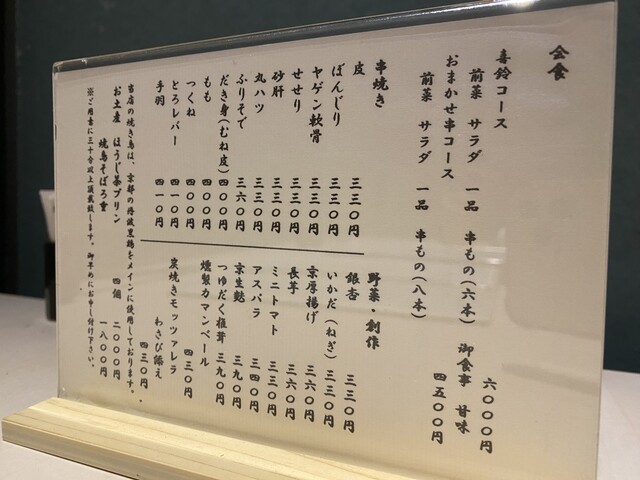 会食
喜鈴コース
前菜 サラダ 一品 串もの(六本) 御食事 甘味 六〇〇〇円
おまかせ串コース
前菜 サラダ 一品 串もの(八本) 四五〇〇円
串焼き
皮 三三〇円
ぼんじり 三三〇円
ヤゲン軟骨 三三〇円
せせり 三三〇円
砂肝 三三〇円
丸ハツ 三三〇円
ふりそで 三六〇円
だき身(むね皮) 四〇〇円
もも 四〇〇円
つくね 四〇〇円
とろレバー 四一〇円
手羽 四一〇円
野菜・創作
銀杏 三三〇円
いかだ(ねぎ) 三三〇円
京厚揚げ 三六〇円
長芋 三六〇円
ミニトマト 三三〇円
アスパラ 三四〇円
京生麩 三九〇円
つゆだく椎茸 三九〇円
燻製カマンベール 四三〇円
炭焼きモッツァレラ
わさび添え 四三〇円
当店の焼き鳥は、京都の丹波黒鶏をメインに使用しております。
お土産 ほうじ茶プリン 四個 二〇〇〇円
焼鳥そぼろ重 一八〇〇円
※ご用意に三十分以上頂戴致します。御早めにお申し付け下さい。